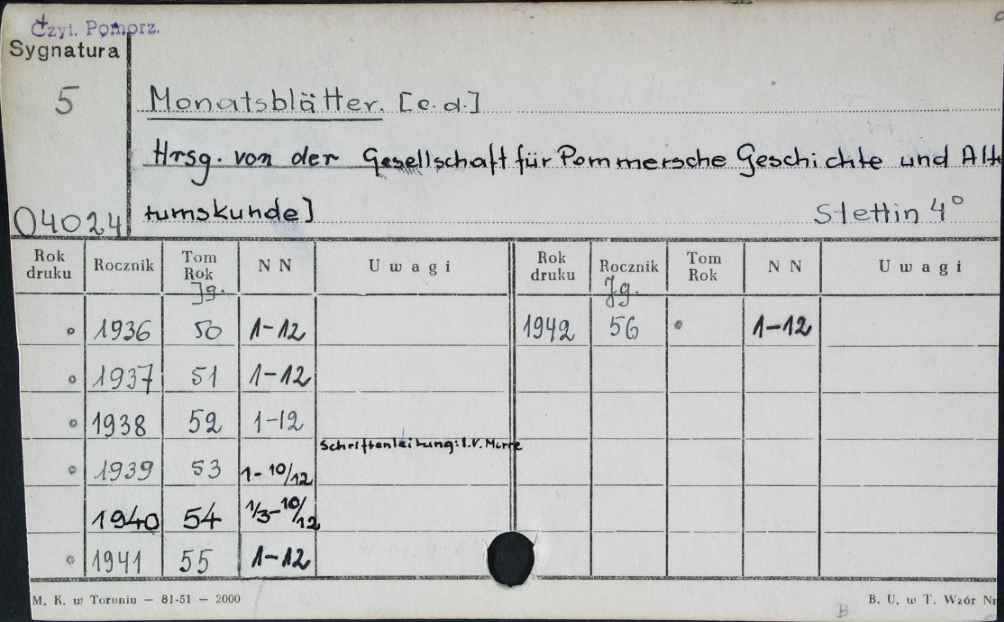 Czyt. Pomorz.
Sygnatura
5
Monatsblätter. [c.d.]
Hrsg. von der Gesellschaft für Pommersche Geschichte und Alt
04024 tumskunde] Stettin 4°
Rok druku Rocznik Tom Rok Jg. N N Uwagi Rok druku Rocznik Jg. Tom Rok N N Uwagi
° 1936 50 1-12 1942 56 ° 1-12
° 1937 51 1-12
° 1938 52 1-12
Schriftenleitung: I.V.
° 1939 53 1-10/12
1940 54 1/3-10/12
° 1941 55 1-12
M. K. w Toruniu — 81-51 — 2000 B. U. w T. Wzór Nr
B